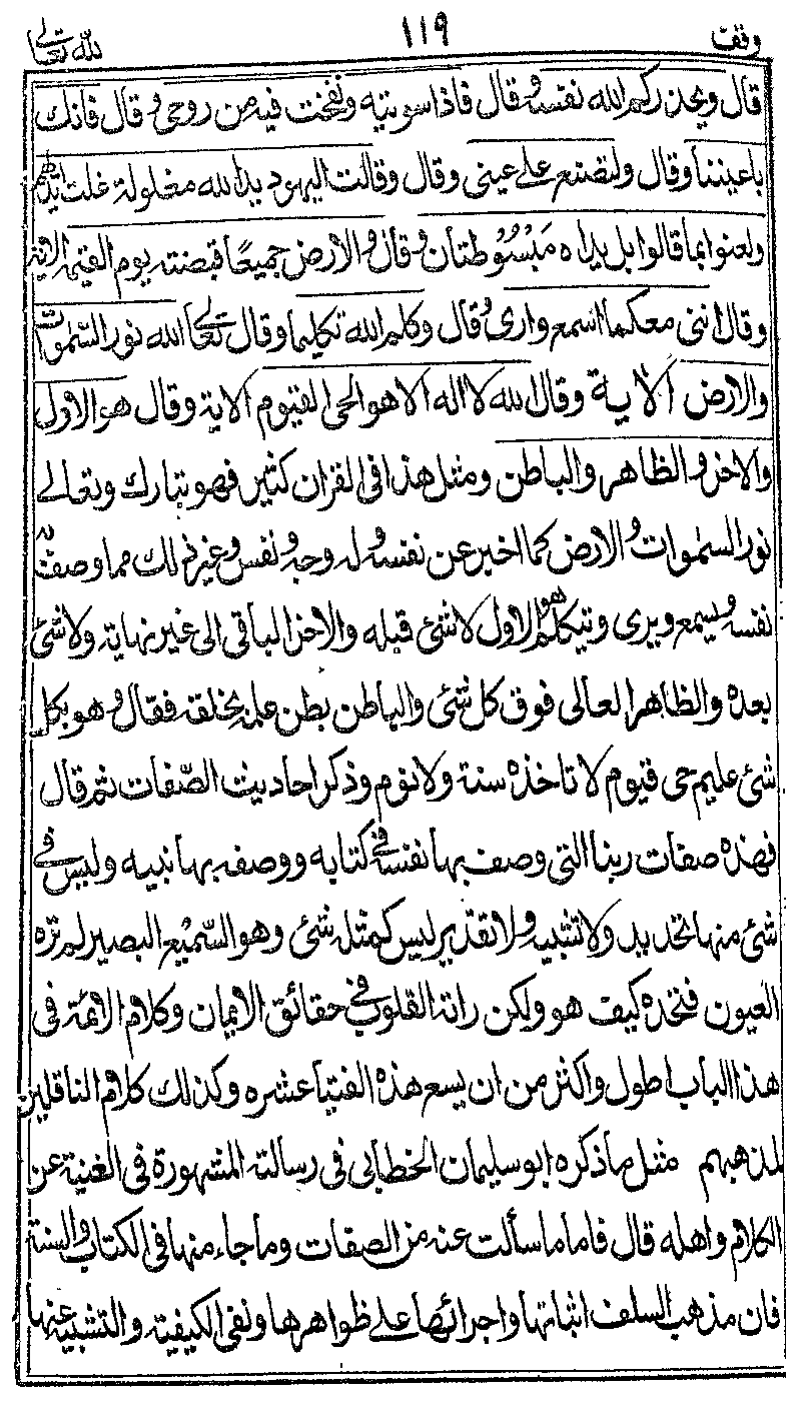 وقف ١١٩ لله تعالى
قال ويحذركم الله نفسه وقال فاذا سويته ونفخت فيه من روحي وقال فانك
باعيننا وقال ولتصنع على عيني وقال وقالت اليهود يد الله مغلولة غلت ايديهم
ولعنوا بما قالوا بل يداه مَبْسُوْطتان وقال والارض جميعًا قبضته يوم القيمة الاية
وقال انني معكما اسمع وارى وقال وكلم الله تكليما وقال تعالى الله نور السّمٰوات
والارض الاية وقال الله لا اله الا هو الحي القيوم الاية وقال هو الاول
والاخر والظاهر والباطن ومثل هذا في القران كثير فهو تبارك وتعالى
نور السمٰوات والارض كما اخبر عن نفسه وله وجه ونفس وغير ذلك مما وصف به
نفسه ويسمع ويرى ويتكلم هو الاول لا شئ قبله والاخر الباقي الى غير نهاية ولا شئ
بعده والظاهر العالى فوق كل شئ والباطن بطن علمه بخلقه فقال وهو بكل
شئ عليم حي قيوم لا تاخذه سنة ولا نوم وذكر احاديث الصّفات ثم قال
فهذه صفات ربنا التي وصف بها نفسه في كتابه ووصفه بها نبيه وليس في
شئ منها تحديد ولا تشبيه ولا تقدير ليس كمثله شئ وهو السّميع البصير لم تره
العيون فتحده كيف هو ولكن راته القلوب في حقائق الايمان وكلام الائمة في
هذا الباب اطول واكثر من ان يسع هذه الفتيا عشره وكذلك كلام الناقلين
لمذهبهم مثل ما ذكره ابو سليمان الخطابي في رسالته المشهورة في الغنية عن
الكلام واهله قال فاما ما سألت عنه من الصفات وما جاء منها في الكتاب والسنة
فان مذهب السلف اثباتها واجرائها على ظواهرها ونفي الكيفية والتشبيه عنها